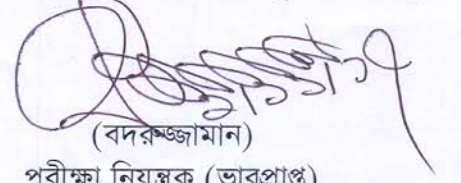 (বদরুজ্জামান)
পরীক্ষা নিয়ন্ত্রক (ভারপ্রাপ্ত)